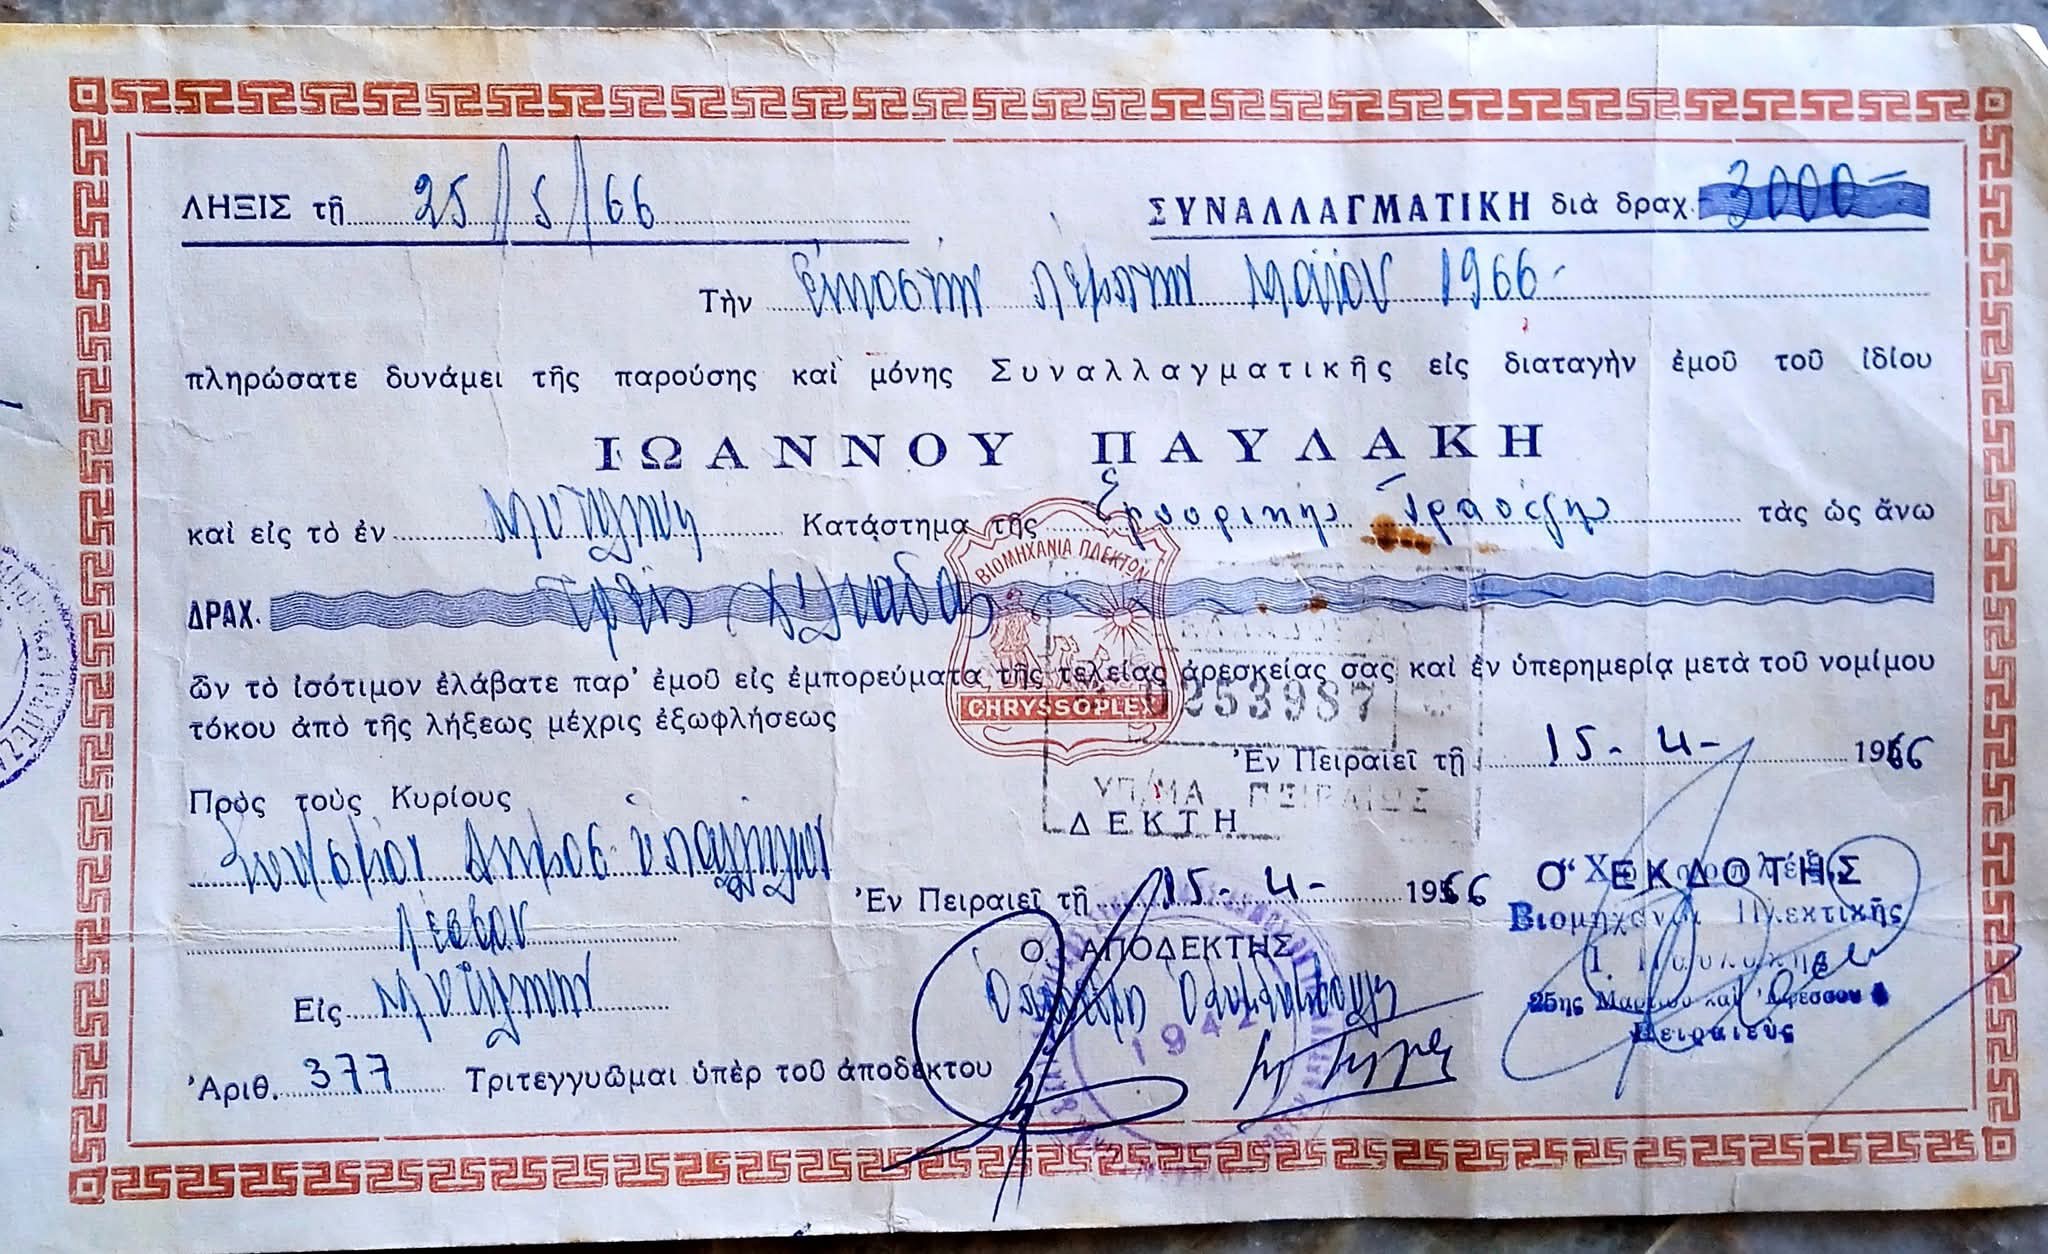 ΛΗΞΙΣ τῇ 25/5/66
ΣΥΝΑΛΛΑΓΜΑΤΙΚΗ διὰ δραχ. 3000-
Τὴν εἰκοστήν πέμπτην Μαΐου 1966-
πληρώσατε δυνάμει τῆς παρούσης καὶ μόνης Συναλλαγματικῆς εἰς διαταγὴν ἐμοῦ τοῦ ἰδίου
ΙΩΑΝΝΟΥ ΠΑΥΛΑΚΗ
καὶ εἰς τὸ ἐν Μυτιλήνη Κατάστημα τῆς Ἐμπορικής Τραπέζης τὰς ὡς ἄνω
ΒΙΟΜΗΧΑΝΙΑ ΠΛΕΚΤΩΝ
ΔΡΑΧ. Τρεῖς χιλιάδας
ὧν τὸ ἰσότιμον ἐλάβατε παρ' ἐμοῦ εἰς ἐμπορεύματα τῆς τελείας ἀρεσκείας σας καὶ ἐν ὑπερημερίᾳ μετὰ τοῦ νομίμου
CHRYSSOPLEX
0253987
τόκου ἀπὸ τῆς λήξεως μέχρις ἐξωφλήσεως
Ἐν Πειραιεῖ τῇ 15-4- 1966
ΥΠ/ΜΑ ΠΕΙΡΑΙΩΣ
Πρὸς τοὺς Κυρίους
ΔΕΚΤΗ
Συνεσμοι Δημοσ. ὑπαλλήλων
Ἐν Πειραιεῖ τῇ 15-4- 1966
Ὁ ΕΚΔΟΤΗΣ
Βιομηχανία Πλεκτικῆς
Λέσβου
Ὁ ΑΠΟΔΕΚΤΗΣ
Ι. Παυλάκης
Εἰς Μυτιλήνην
25ης Μαρτίου καὶ
Πειραιεύς
1942
Ἀριθ. 377 Τριτεγγυῶμαι ὑπὲρ τοῦ ἀποδέκτου